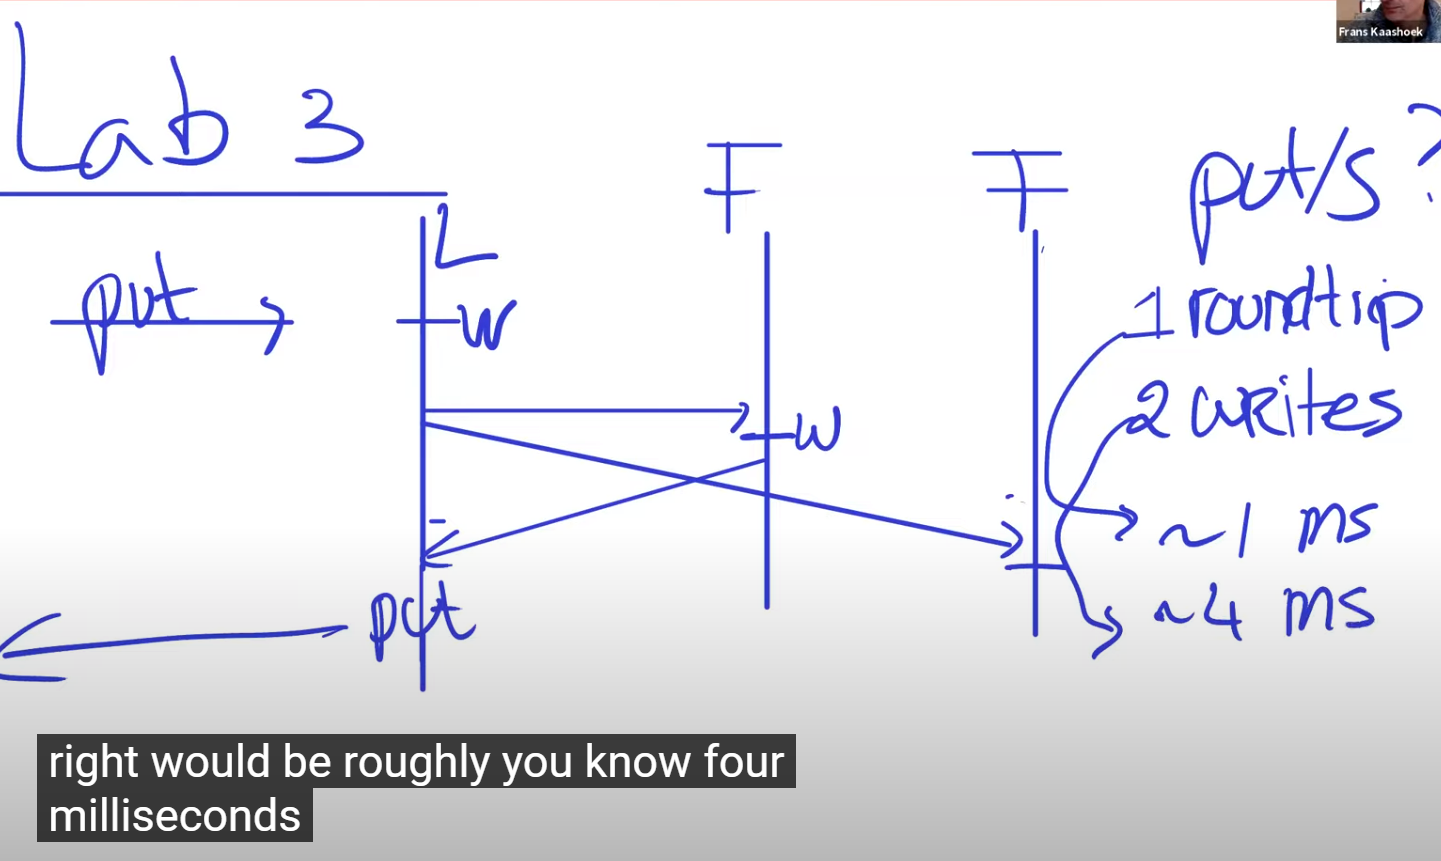 Frans Kaashoek
Lab 3
L
F
F
put/s ?
put
w
1 roundtrip
w
2 writes
~1 ms
~4 ms
put
right would be roughly you know four
milliseconds